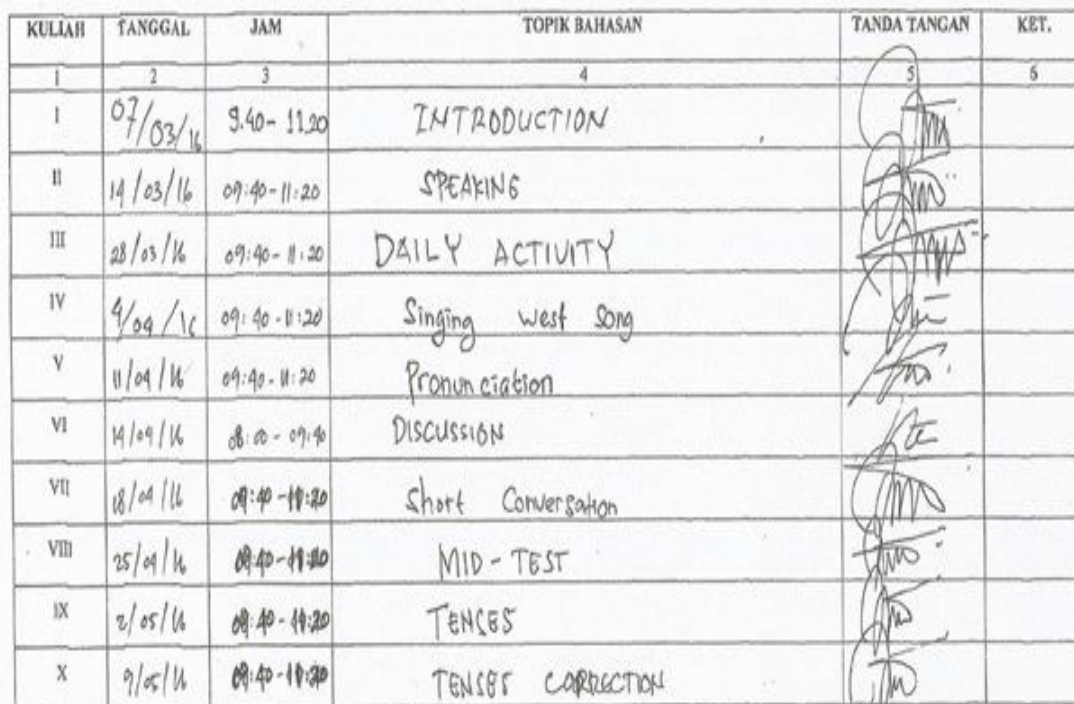 KULIAH TANGGAL JAM TOPIK BAHASAN TANDA TANGAN KET.
1 2 3 4 5 6
I 07/03/16 9.40 - 11.20 INTRODUCTION
II 14/03/16 09:40 - 11:20 SPEAKING
III 28/03/16 09:40 - 11:20 DAILY ACTIVITY
IV 4/04/16 09:40 - 11:20 Singing west song
V 11/04/16 09:40 - 11:20 Pronunciation
VI 14/04/16 08:00 - 09:40 DISCUSSION
VII 18/04/16 09:40 - 11:20 Short Conversation
VIII 25/04/16 09:40 - 11:20 MID - TEST
IX 2/05/16 09:40 - 11:20 TENSES
X 9/05/16 09:40 - 11:20 TENSES CORRECTION